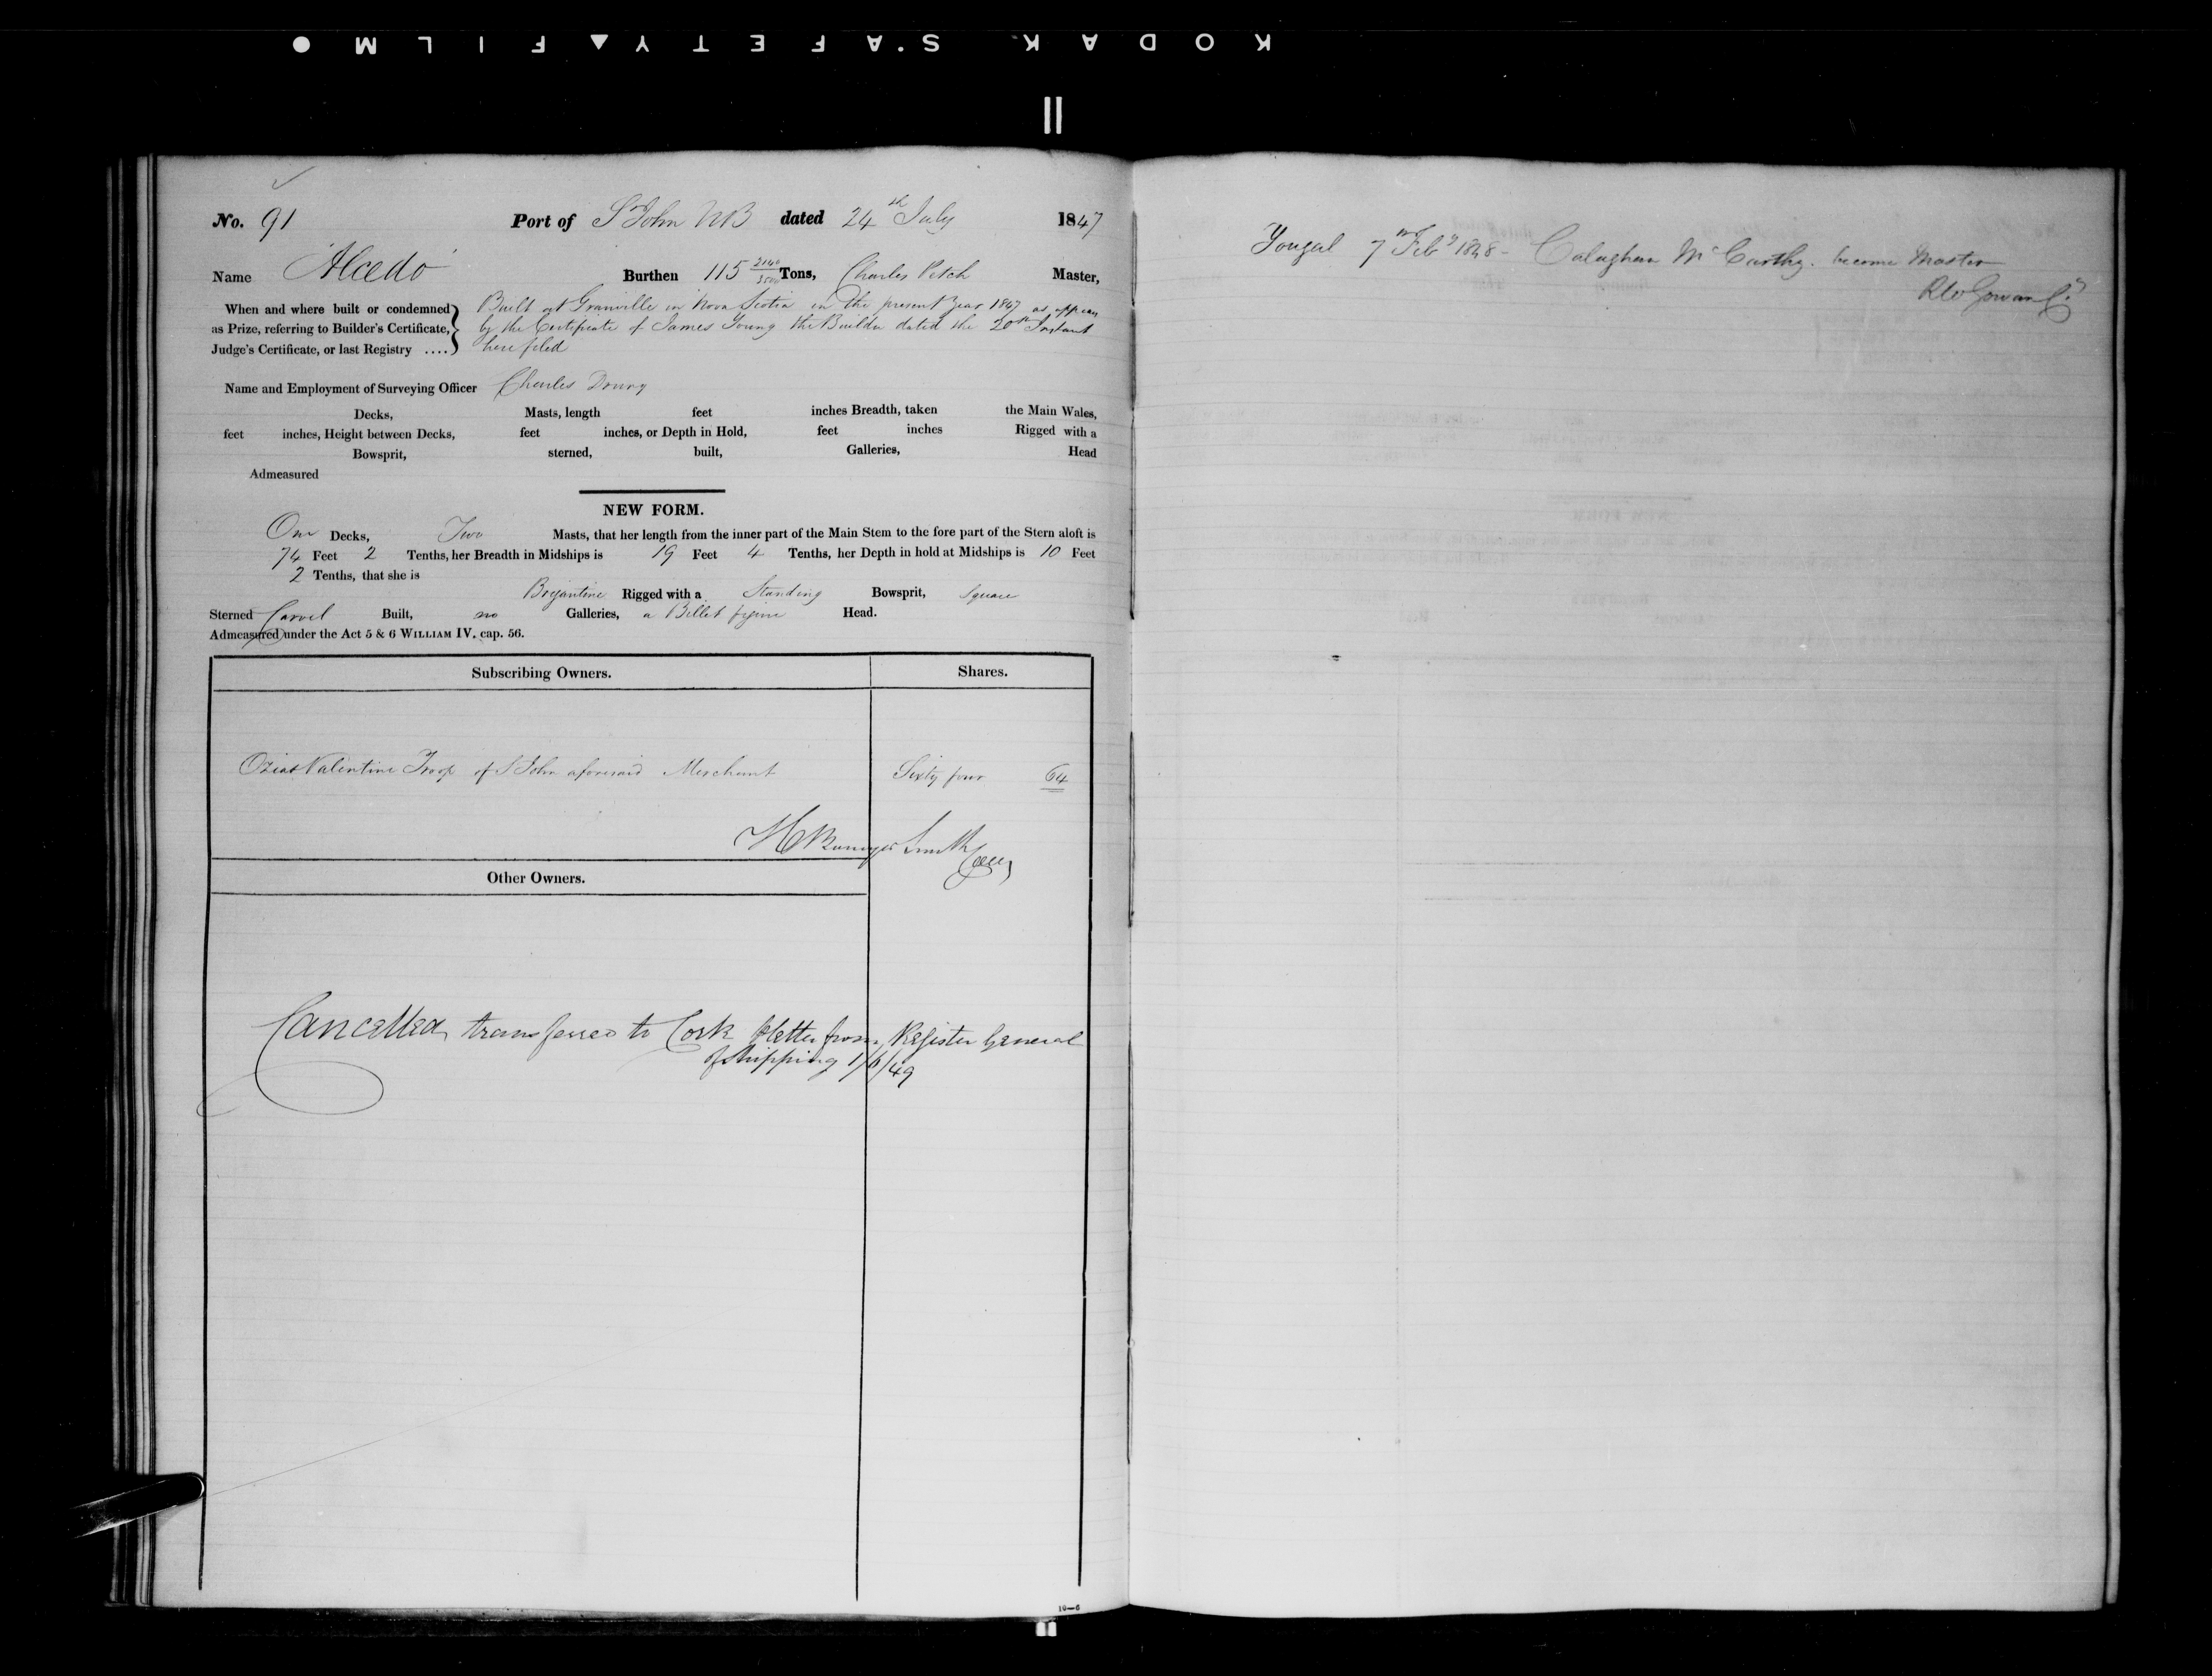 KODAK SAFETY FILM
No. 91 Port of St John NB dated 24th July 1847
Name Alcedo Burthen 115 2140/3500 Tons, Charles Petch Master,
When and where built or condemned as Prize, referring to Builder's Certificate, Judge's Certificate, or last Registry ....
Built at Granville in Nova Scotia in the present year 1847 as appears
by the Certificate of James Young the Builder dated the 20th Instant
here filed
Name and Employment of Surveying Officer Charles Drury
Decks, Masts, length feet inches Breadth, taken the Main Wales,
feet inches, Height between Decks, feet inches, or Depth in Hold, feet inches Rigged with a
Bowsprit, sterned, built, Galleries, Head
Admeasured
NEW FORM.
One Decks, Two Masts, that her length from the inner part of the Main Stem to the fore part of the Stern aloft is
74 Feet 2 Tenths, her Breadth in Midships is 19 Feet 4 Tenths, her Depth in hold at Midships is 10 Feet
2 Tenths, that she is
Brigantine Rigged with a Standing Bowsprit, Square
Sterned Carvel Built, no Galleries, a Billet figure Head.
Admeasured under the Act 5 & 6 WILLIAM IV. cap. 56.
Subscribing Owners. Shares.
Ozias Valentine Troop of St John aforesaid Merchant Sixty four 64
H Bowyer Smith
Other Owners.
Cancelled transferred to Cork letter from Register General
of Shipping 1/6/49
10—6
Yougal 7th Feby 1848 - Calaghan McCarthy become Master